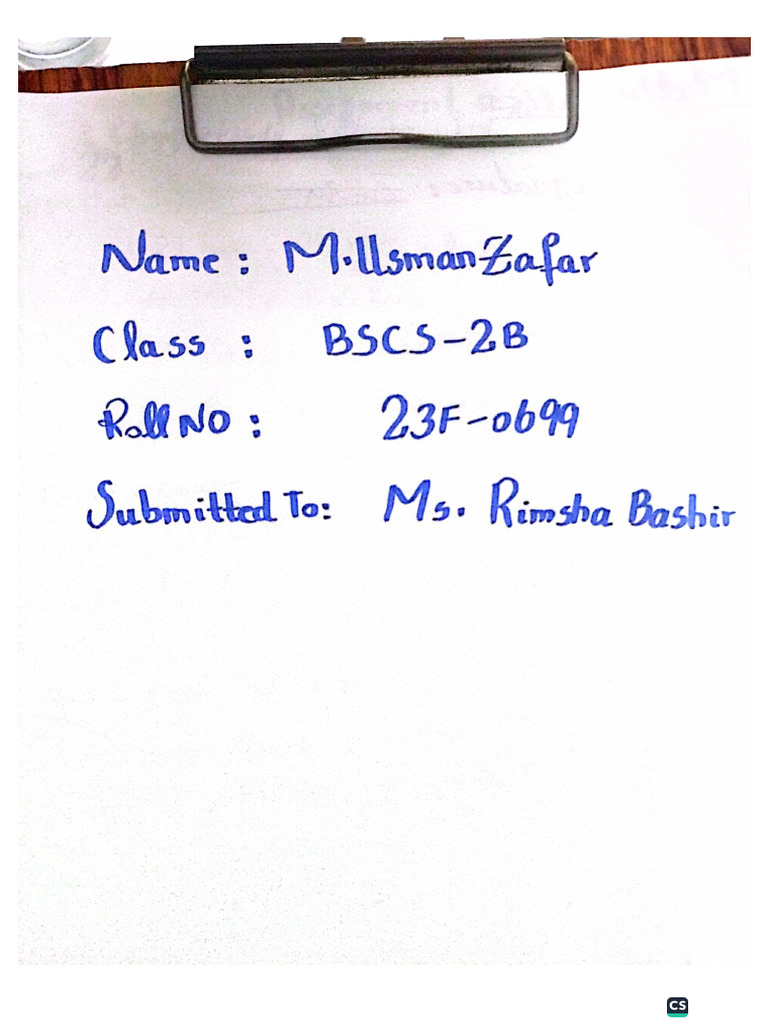 Name : M.Usman Zafar
Class : BSCS-2B
Roll NO : 23F-0699
Submitted To: Ms. Rimsha Bashir
CS